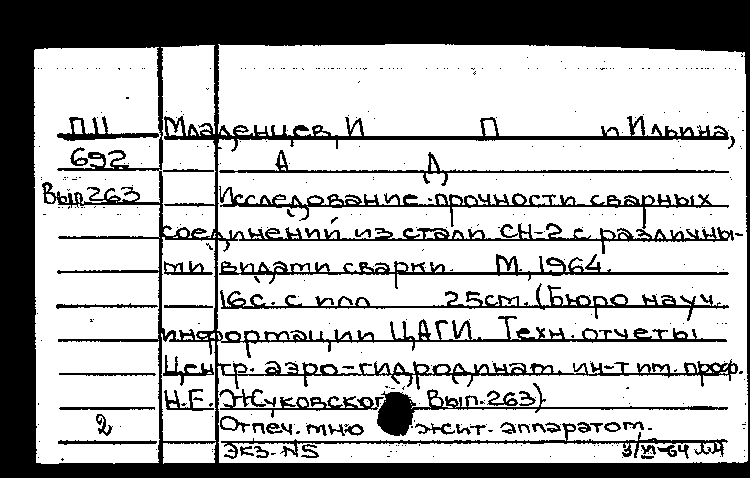 ПII Младенцев, И П и Ильина,
692 А Д,
Вып.263 Исследование прочности сварных
соединений из стали СН-2 с различны-
ми видами сварки. М., 1964.
16с. с илл 25см. (Бюро науч.
информации ЦАГИ. Техн. отчеты
Центр. аэро-гидродинам. ин-т им. проф.
Н.Е. Жуковского Вып.263)
2 Отпеч. мно жит. аппаратом.
Экз. №5 3/VI-64